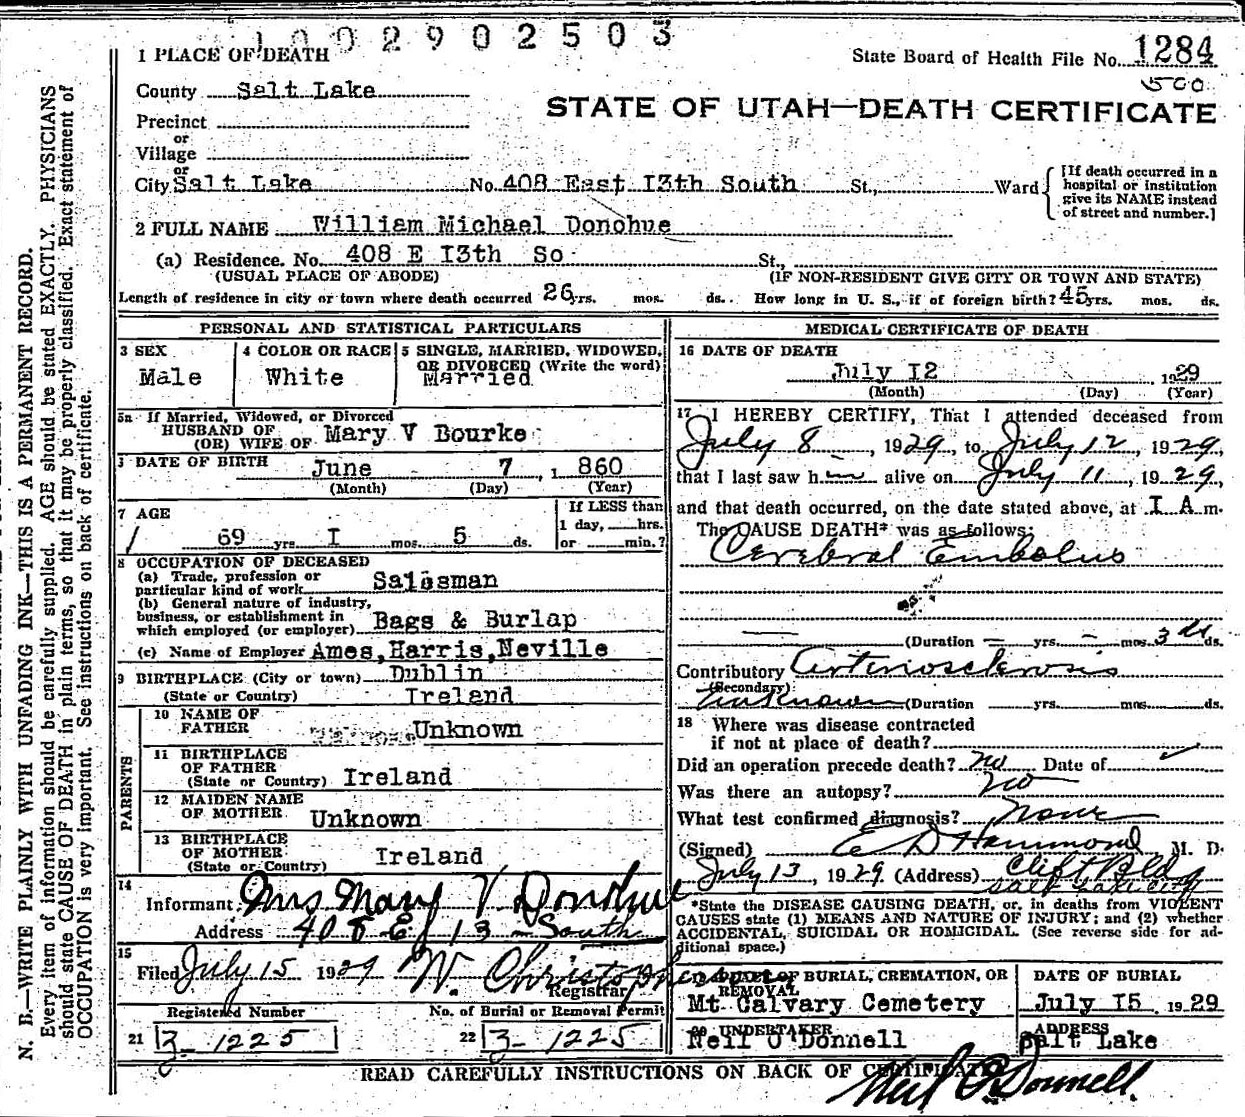 1002902503
1 PLACE OF DEATH
State Board of Health File No. 1284
500
County Salt Lake
STATE OF UTAH—DEATH CERTIFICATE
Precinct
or
Village
or
City Salt Lake No. 408 East 13th South St., Ward
[If death occurred in a
hospital or institution
give its NAME instead
of street and number.]
2 FULL NAME William Michael Donohue
(a) Residence. No. 408 E 13th So St.,
(USUAL PLACE OF ABODE) (IF NON-RESIDENT GIVE CITY OR TOWN AND STATE)
Length of residence in city or town where death occurred 26 yrs. mos. ds. How long in U. S., if of foreign birth? 45 yrs. mos. ds.
PERSONAL AND STATISTICAL PARTICULARS
3 SEX
Male
4 COLOR OR RACE
White
5 SINGLE, MARRIED, WIDOWED,
OR DIVORCED (Write the word)
Married
5a If Married, Widowed, or Divorced
HUSBAND OF
(OR) WIFE OF Mary V Bourke
DATE OF BIRTH June 7, 1860
(Month) (Day) (Year)
7 AGE
69 yrs I mos. 5 ds.
If LESS than
1 day, hrs.
or min.?
8 OCCUPATION OF DECEASED
(a) Trade, profession or
particular kind of work Salesman
(b) General nature of industry,
business, or establishment in
which employed (or employer) Bags & Burlap
(c) Name of Employer Ames, Harris, Neville
9 BIRTHPLACE (City or town) Dublin
(State or Country) Ireland
PARENTS
10 NAME OF
FATHER Unknown
11 BIRTHPLACE
OF FATHER
(State or Country) Ireland
12 MAIDEN NAME
OF MOTHER Unknown
13 BIRTHPLACE
OF MOTHER
(State or Country) Ireland
14
Informant Mrs Mary V Donohue
Address 408 E 13 - South
15
Filed July 15 1929 W. Christopherson
Registrar
Registered Number
21 3- 1225
No. of Burial or Removal Permit
22 3- 1225
MEDICAL CERTIFICATE OF DEATH
16 DATE OF DEATH
July I2 1929
(Month) (Day) (Year)
17 I HEREBY CERTIFY, That I attended deceased from
July 8, 1929, to July 12, 1929,
that I last saw him alive on July 11, 1929,
and that death occurred, on the date stated above, at I A m.
The CAUSE DEATH* was as follows:
Cerebral Embolus
(Duration — yrs. — mos. 3 ds ds.
Contributory Arteriosclerosis
(Secondary)
Unknown (Duration yrs. mos. ds.
18 Where was disease contracted
if not at place of death?
Did an operation precede death? no Date of
Was there an autopsy? no
What test confirmed diagnosis? None
(Signed) E D Hammond M. D.
July 13, 1929 (Address) Clift Bldg
Salt Lake City
*State the DISEASE CAUSING DEATH, or, in deaths from VIOLENT
CAUSES state (1) MEANS AND NATURE OF INJURY; and (2) whether
ACCIDENTAL, SUICIDAL OR HOMICIDAL. (See reverse side for ad-
ditional space.)
19 PLACE OF BURIAL, CREMATION, OR
REMOVAL
Mt Calvary Cemetery
DATE OF BURIAL
July I5 1929
20 UNDERTAKER
Neil O'Donnell
ADDRESS
Salt Lake
READ CAREFULLY INSTRUCTIONS ON BACK OF CERTIFICATE
Neil O'Donnell.
N. B.—WRITE PLAINLY WITH UNFADING INK—THIS IS A PERMANENT RECORD.
Every item of information should be carefully supplied. AGE should be stated EXACTLY. PHYSICIANS
should state CAUSE OF DEATH in plain terms, so that it may be properly classified. Exact statement of
OCCUPATION is very important. See instructions on back of certificate.